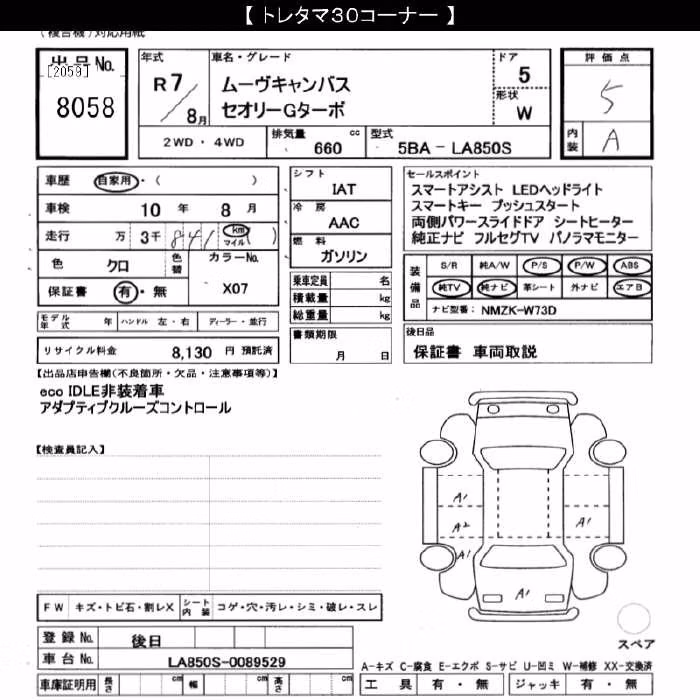 【 トレタマ30コーナー 】
(複合機)対応用紙
出品No.
[2059]
8058
年式
R 7
8月
車名・グレード
ムーヴキャンバス
セオリーGターボ
ドア
5
形状
W
評価点
5
内装
A
2WD ・ 4WD
排気量
660 cc
型式
5BA - LA850S
車歴 自家用・( )
車検 10 年 8 月
走行 万 3千 841 km マイル ( )
色 クロ
色替
カラーNo.
X07
保証書 有・無
モデル年式 年
ハンドル 左・右
ディーラー・並行
リサイクル料金 8,130 円 預託済
シフト
IAT
冷房
AAC
燃料
ガソリン
乗車定員 名
積載量 kg
総重量 kg
書類期限
月 日
セールスポイント
スマートアシスト LEDヘッドライト
スマートキー プッシュスタート
両側パワースライドドア シートヒーター
純正ナビ フルセグTV パノラマモニター
装備品
S/R 純A/W P/S P/W ABS
純TV 純ナビ 革シート 外ナビ エアB
ナビ型番: NMZK-W73D
後日品
保証書 車両取説
【出品店申告欄(不良箇所・欠品・注意事項等)】
eco IDLE非装着車
アダプティブクルーズコントロール
【検査員記入】
A1
A2
A1
A1
A1
FW キズ・トビ石・割レX
シート内装 コゲ・穴・汚レ・シミ・破レ・スレ
登録No. 後日
車台No. LA850S-0089529
車庫証明用 長さ cm 幅 cm 高さ cm
スペア
A-キズ C-腐食 E-エクボ S-サビ U-凹ミ W-補修 XX-交換済
工具 有・無 ジャッキ 有・無